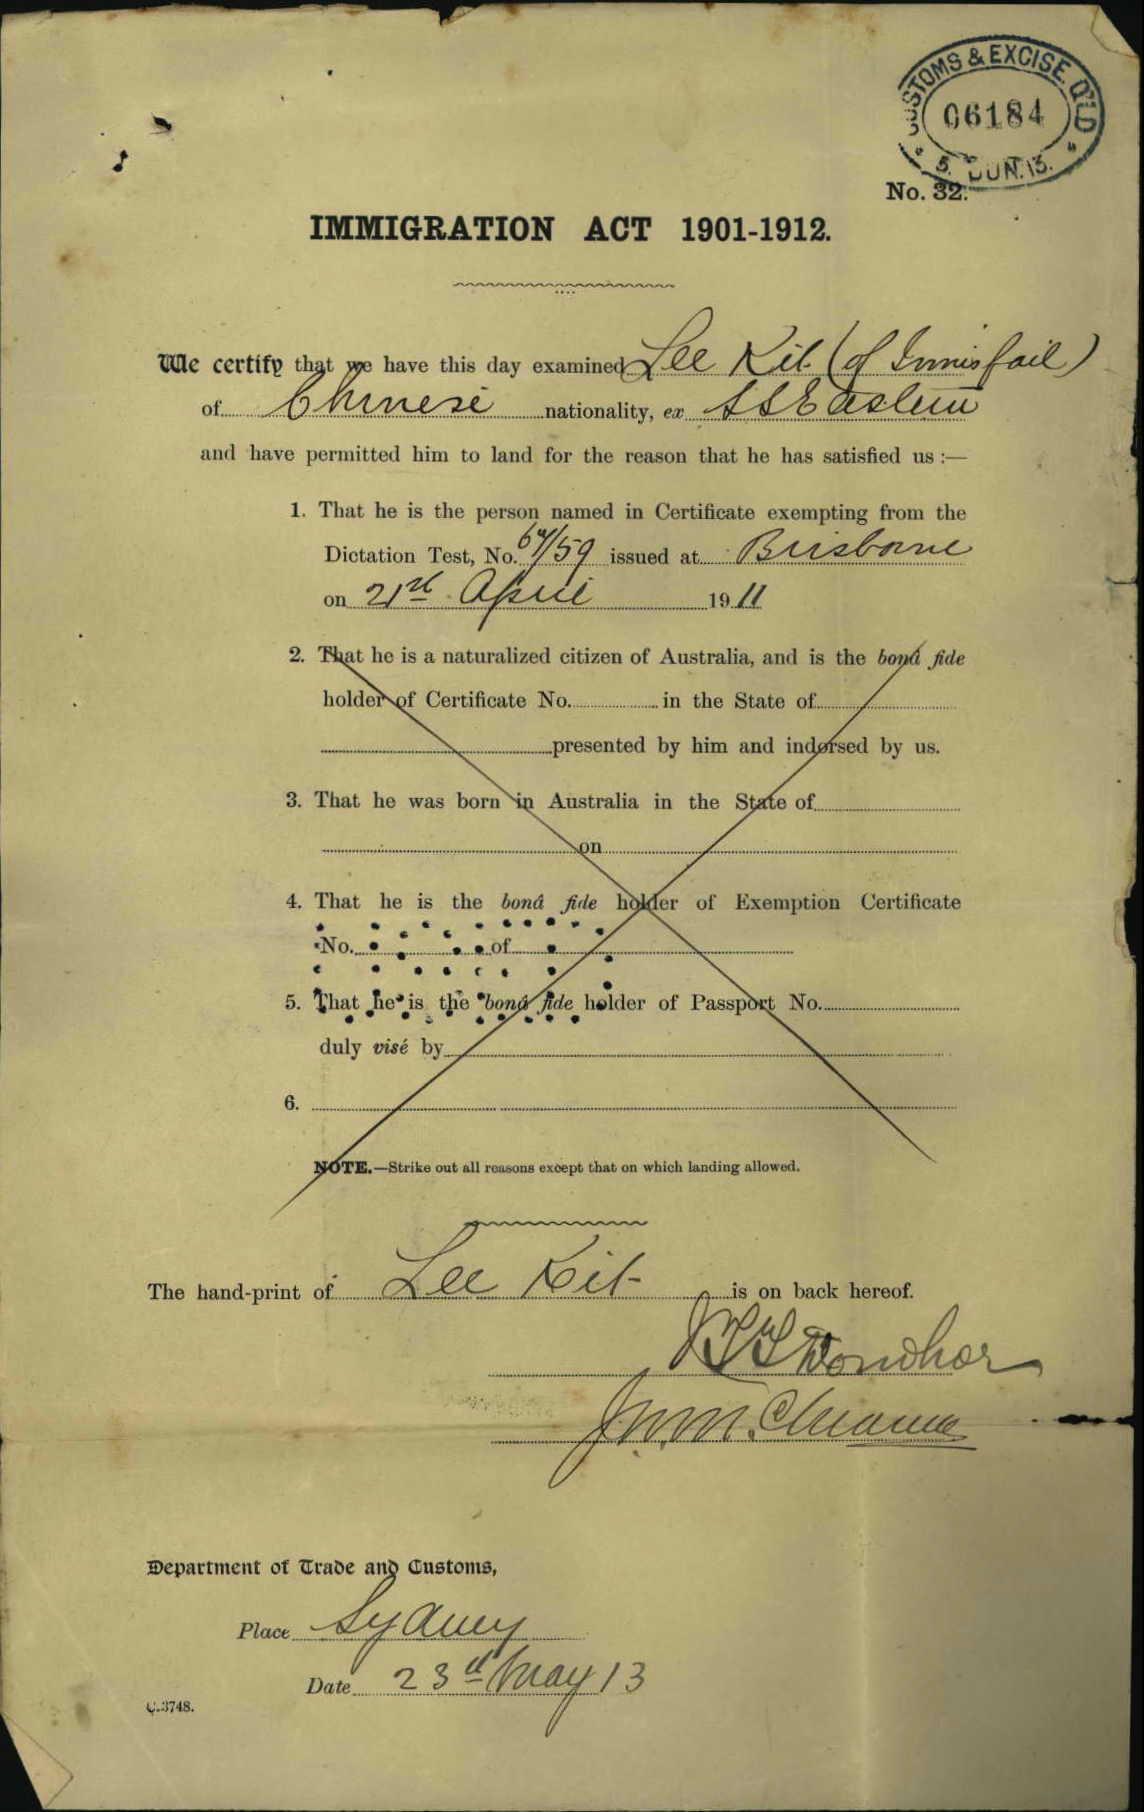 CUSTOMS & EXCISE. Q'LD
06184
5. JUN. 13.
No. 32.
IMMIGRATION ACT 1901-1912.
We certify that we have this day examined Lee Kit (of Innisfail)
of Chinese nationality, ex SS Eastern
and have permitted him to land for the reason that he has satisfied us :—
1. That he is the person named in Certificate exempting from the
Dictation Test, No. /59 issued at Brisbane
on 21st April 1911
2. That he is a naturalized citizen of Australia, and is the bonâ fide
holder of Certificate No. in the State of
presented by him and indorsed by us.
3. That he was born in Australia in the State of
on
4. That he is the bonâ fide holder of Exemption Certificate
No. of
5. That he is the bonâ fide holder of Passport No.
duly visé by
6.
NOTE.—Strike out all reasons except that on which landing allowed.
The hand-print of Lee Kit is on back hereof.
Department of Trade and Customs,
Place Sydney
Date 23rd May 13
C.3748.